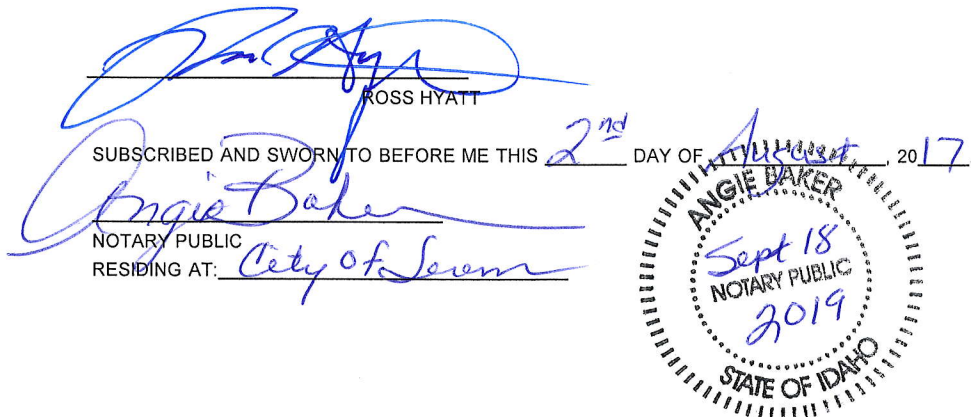 ROSS HYATT
SUBSCRIBED AND SWORN TO BEFORE ME THIS 2nd DAY OF August, 2017
Angie Baker
NOTARY PUBLIC
RESIDING AT: City Of
ANGIE BAKER
Sept 18
NOTARY PUBLIC
2019
STATE OF IDAHO